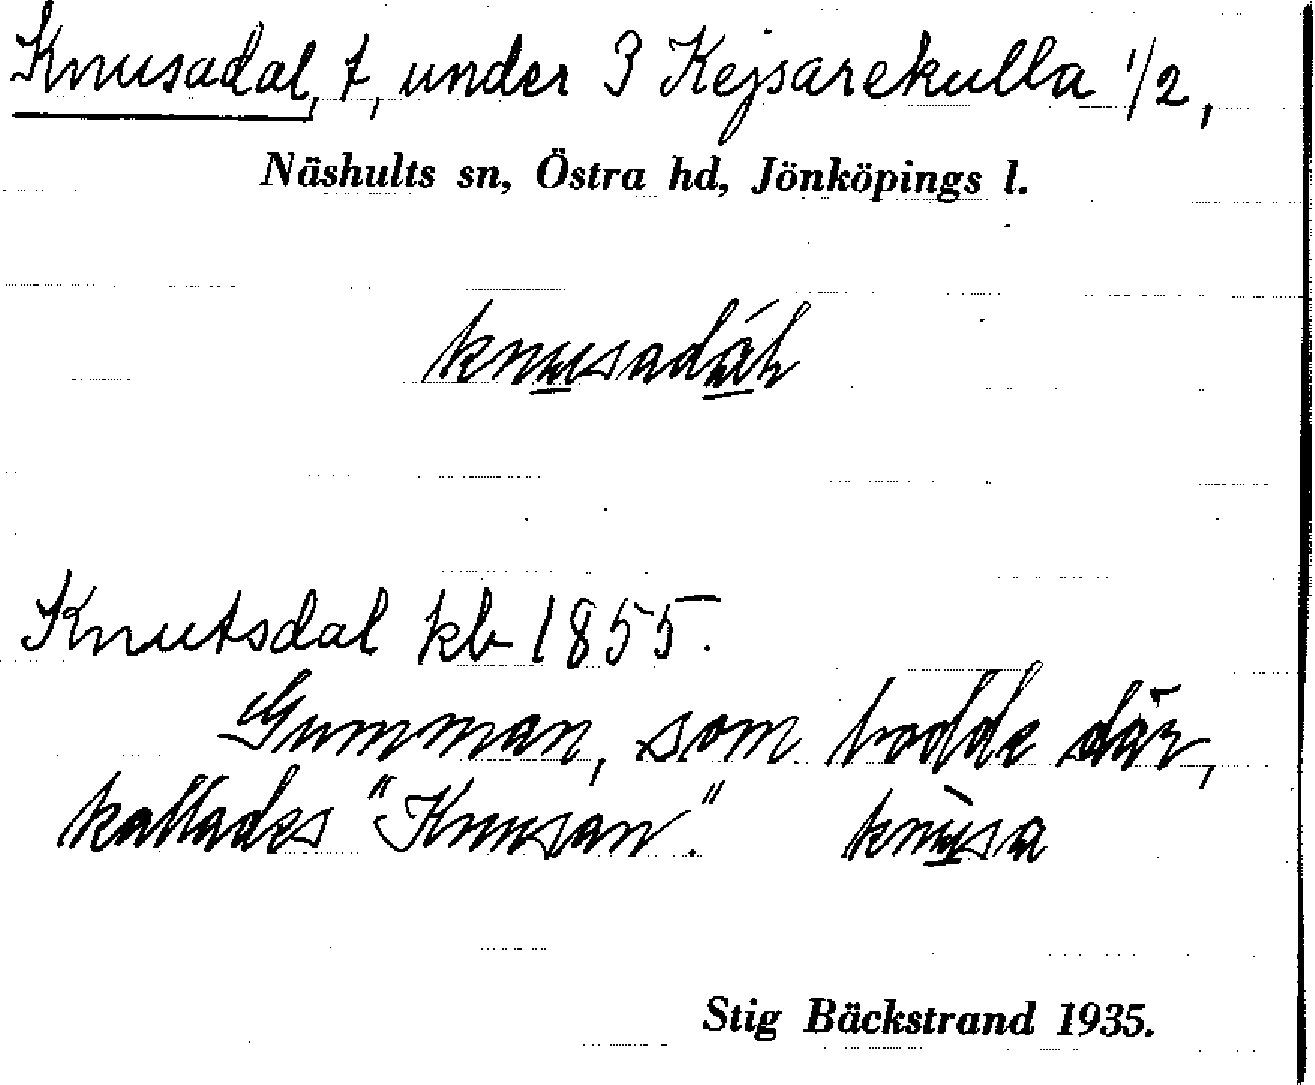 Knusadal, t, under 3 Kejsarekulla 1/2,
Näshults sn, Östra hd, Jönköpings l.
knusadáh
Knutsdal kb 1855.
Gumman, som bodde där,
kallades "Knusan." knùsa
Stig Bäckstrand 1935.